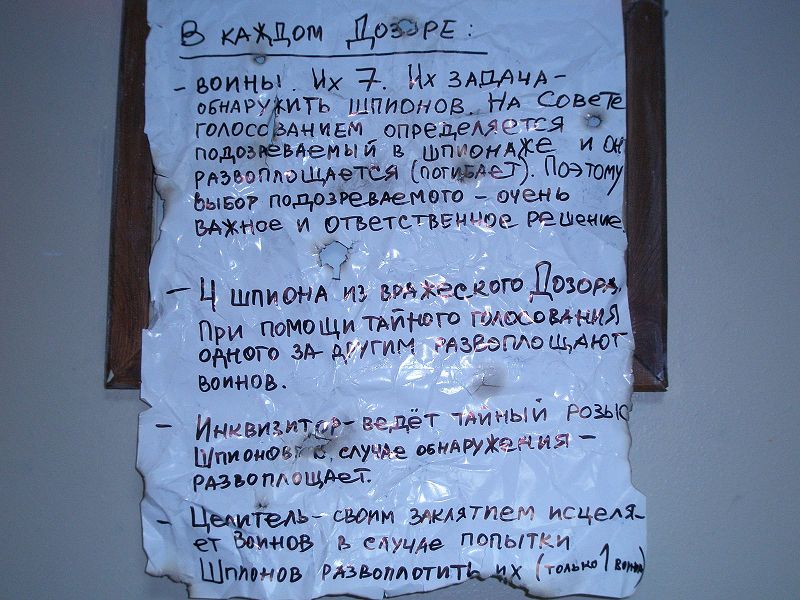 В КАЖДОМ ДОЗОРЕ:
- ВОИНЫ. ИХ 7. ИХ ЗАДАЧА -
ОБНАРУЖИТЬ ШПИОНОВ. НА СОВЕТЕ
ГОЛОСОВАНИЕМ ОПРЕДЕЛЯЕТСЯ
ПОДОЗРЕВАЕМЫЙ В ШПИОНАЖЕ И ОН
РАЗВОПЛОЩАЕТСЯ (ПОГИБАЕТ). ПОЭТОМУ
ВЫБОР ПОДОЗРЕВАЕМОГО - ОЧЕНЬ
ВАЖНОЕ И ОТВЕТСТВЕННОЕ РЕШЕНИЕ.
- 4 ШПИОНА ИЗ ВРАЖЕСКОГО ДОЗОРА.
ПРИ ПОМОЩИ ТАЙНОГО ГОЛОСОВАНИЯ
ОДНОГО ЗА ДРУГИМ РАЗВОПЛОЩАЮТ
ВОИНОВ.
- ИНКВИЗИТОР - ВЕДЁТ ТАЙНЫЙ РОЗЫС
ШПИОНОВ СЛУЧАЕ ОБНАРУЖЕНИЯ -
РАЗВОПЛОЩАЕТ.
- ЦЕЛИТЕЛЬ - СВОИМ ЗАКЛЯТИЕМ ИСЦЕЛЯ-
ЕТ ВОИНОВ В СЛУЧАЕ ПОПЫТКИ
ШПИОНОВ РАЗВОПЛОТИТЬ ИХ (ТОЛЬКО 1 ВОИНА)